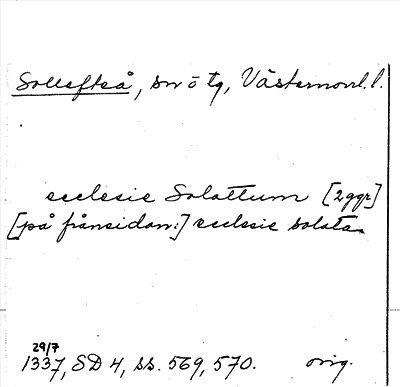 Sollefteå, sn o tg, Västernorrl. l.
ecclesie Solattum [2ggr]
[på frånsidan:] ecclesie solata
29/7
1337, SD 4, ss. 569, 570. orig.